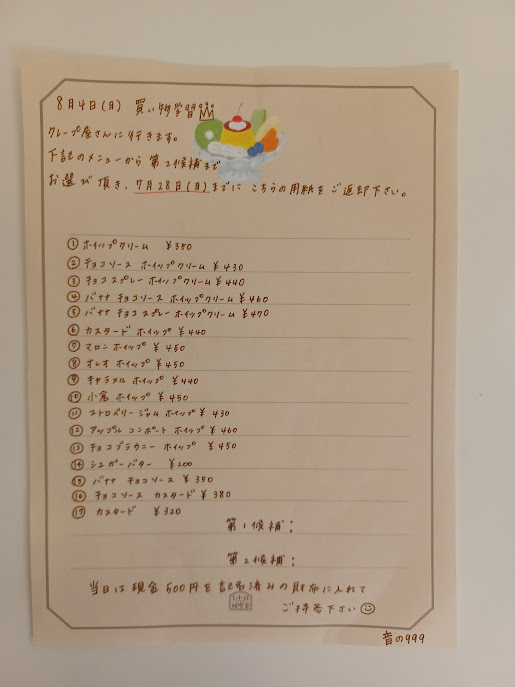 8月4日(月) 買い物学習
クレープ屋さんに行きます。
下記のメニューから 第2候補まで
お選び頂き、7月28日(月)までに こちらの用紙をご返却下さい。
① ホイップクリーム ￥350
② チョコソース ホイップクリーム ￥430
③ チョコスプレー ホイップクリーム ￥440
④ バナナ チョコソース ホイップクリーム ￥460
⑤ バナナ チョコスプレー ホイップクリーム ￥470
⑥ カスタード ホイップ ￥440
⑦ マロン ホイップ ￥450
⑧ オレオ ホイップ ￥450
⑨ キャラメル ホイップ ￥440
⑩ 小倉 ホイップ ￥450
⑪ ストロベリー ジャム ホイップ ￥430
⑫ アップル コンポート ホイップ ￥460
⑬ チョコブラウニー ホイップ ￥450
⑭ シュガーバター ￥200
⑮ バナナ チョコソース ￥350
⑯ チョコソース カスタード ￥380
⑰ カスタード ￥320
第1候補：
第2候補：
当日は現金500円を記名済みの財布に入れて
ご持参下さい
音の999